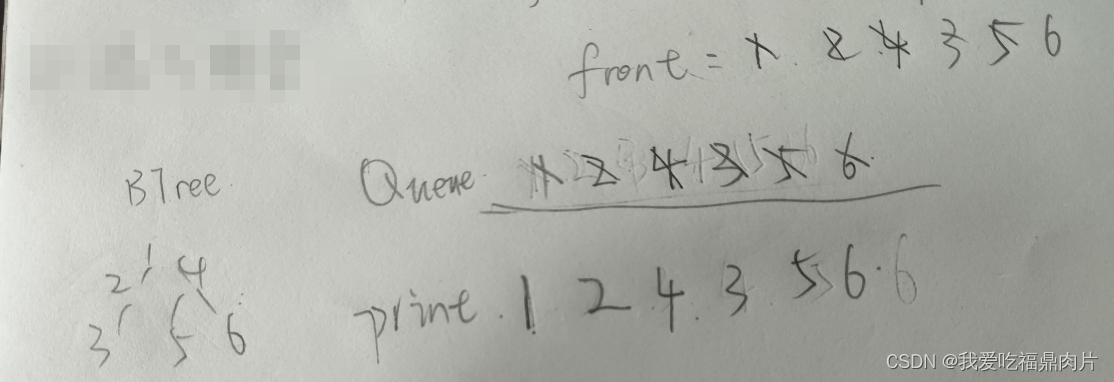 front = 1 2 4 3 5 6
Queue 1 2 4 3 5 6
BTree
print 1 2 4 3 5 6 6
1
2 4
3 5 6
CSDN @我爱吃福鼎肉片